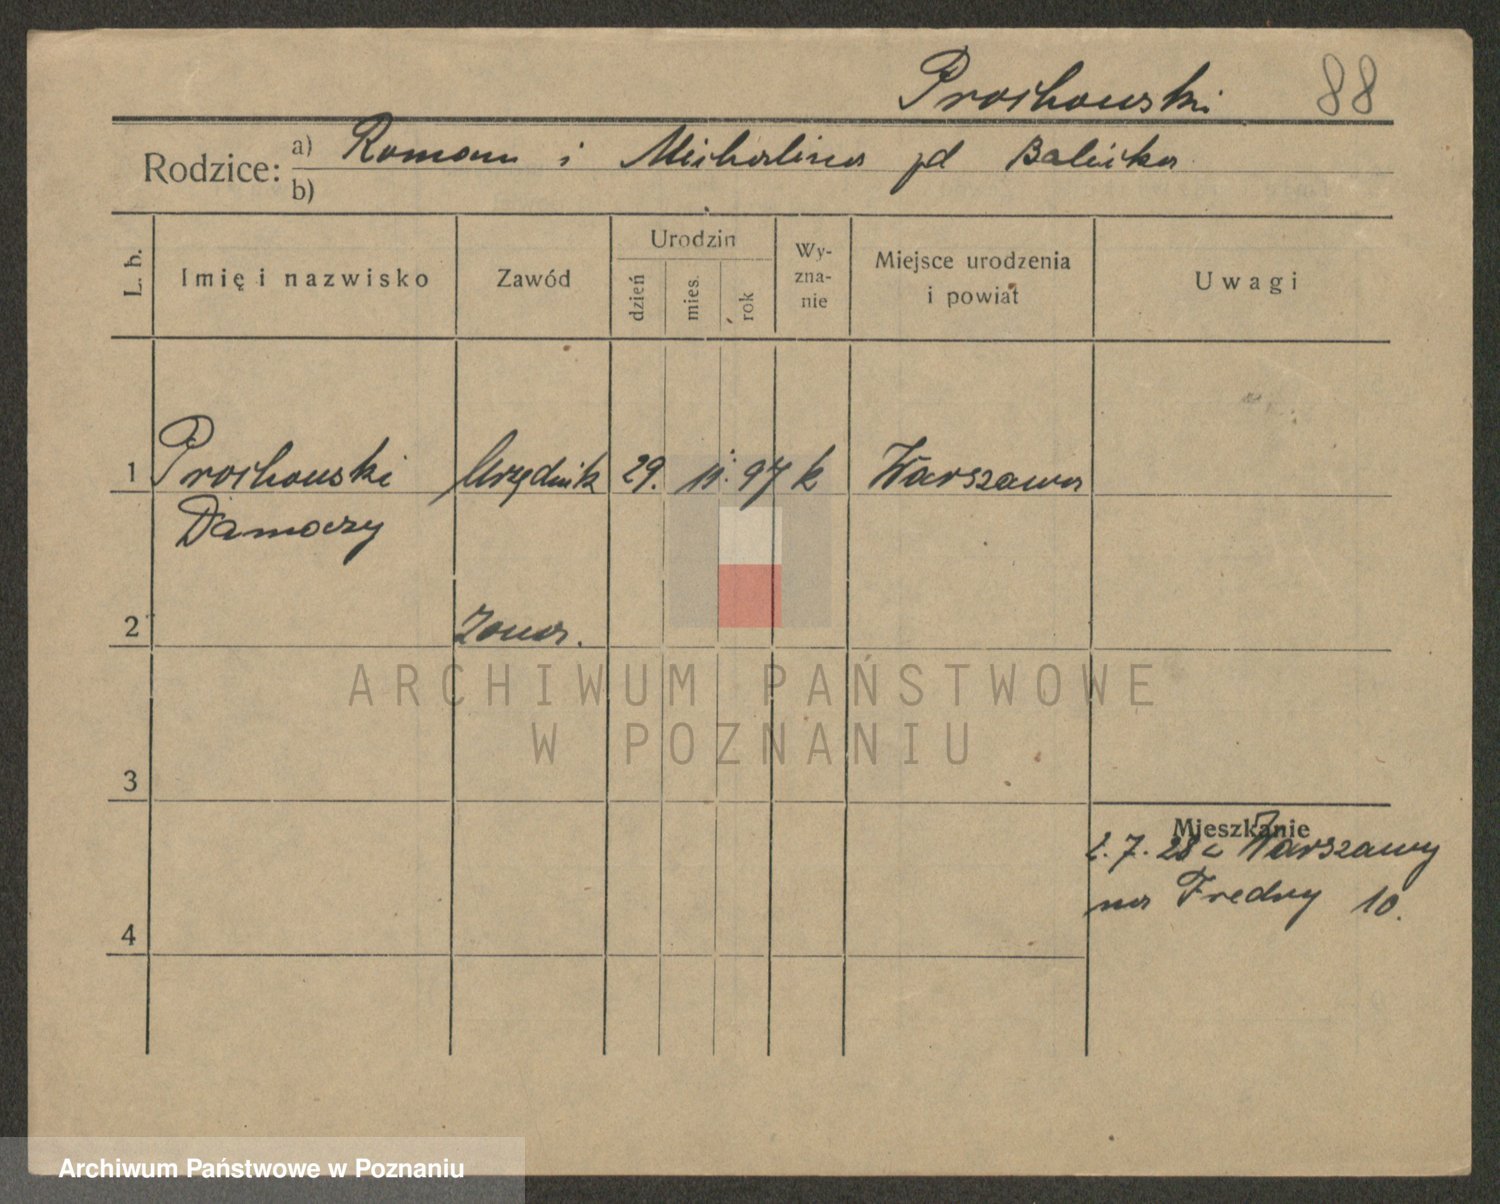 Prochowski 88
Rodzice: a) Roman i Michalina zd Balicka
b)
L. b. Imię i nazwisko Zawód Urodzin dzień mies. rok Wy-zna-nie Miejsce urodzenia i powiat Uwagi
1 Prochowski Urzędnik 29. 11. 97 k Warszawa
Damazy
2 Żona.
3
Mieszkanie
2. 7. 28 z Warszawy
na Fredry 10.
4
ARCHIWUM PAŃSTWOWE
W POZNANIU
Archiwum Państwowe w Poznaniu